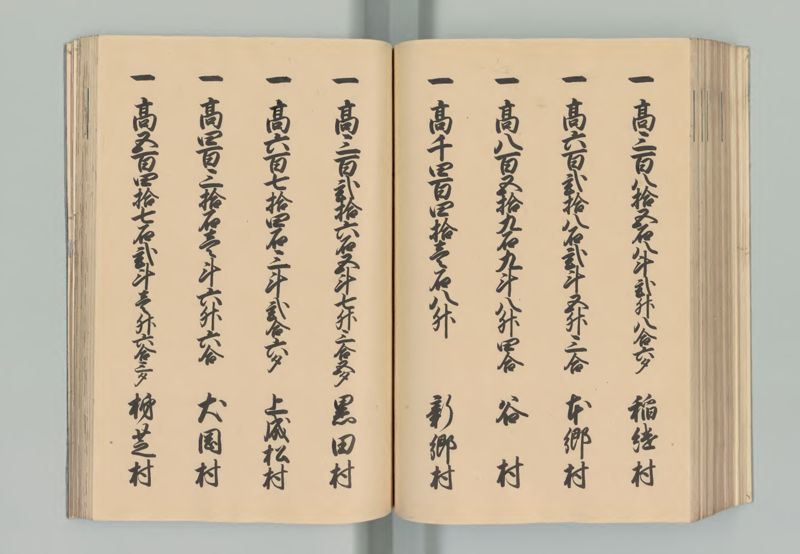 一 高三百八拾五石八斗弐升八合六夕 稲継村
一 高六百弐拾八石弐斗五升三合 本郷村
一 高八百五拾九石九斗八升四合 谷村
一 高千四百四拾壱石八升 新郷村
一 高三百弐拾六石五斗七升三合五夕 黒田村
一 高六百七拾四石三斗弐合六夕 上成松村
一 高四百三拾石壱斗六升六合 犬岡村
一 高五百四拾七石弐斗壱升六合三夕 柿芝村